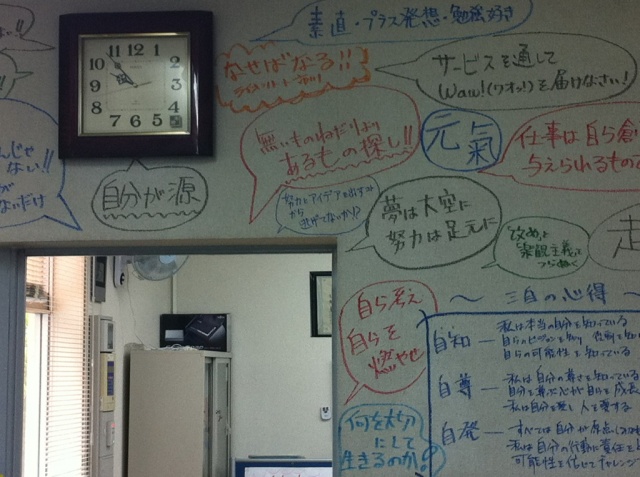 素直・プラス発想・勉強好き
なせばなる!!
サービスを通して
Waw!(ワオッ!)を届けなさい!
無いものねだりより
あるもの探し!!
元氣
仕事は自ら創
与えられるもの
んじゃ
ない!!
が
ないだけ
11 12 1
10 2
9 3
8 4
7 6 5
自分が源
努力とアイデアを出す
から
逃げてないか!?
夢は大空に
努力は足元に
攻めよ
楽観主義で
つらぬく
走
自ら考え
自らを
燃やせ
何を大切
にして
生きるのか?
〜 三自の心得 〜
自知 — 私は本当の自分を知っている
自らのビジョンを知り 役割を知
自らの可能性を知っている
自尊 — 私は自分の尊さを知っている
自分を尊ぶ心が自らを成長
私は自分を愛し 人を愛する
自発 — すべては自分が原点
私は自分の行動に責任を
可能性を信じてチャレンジ